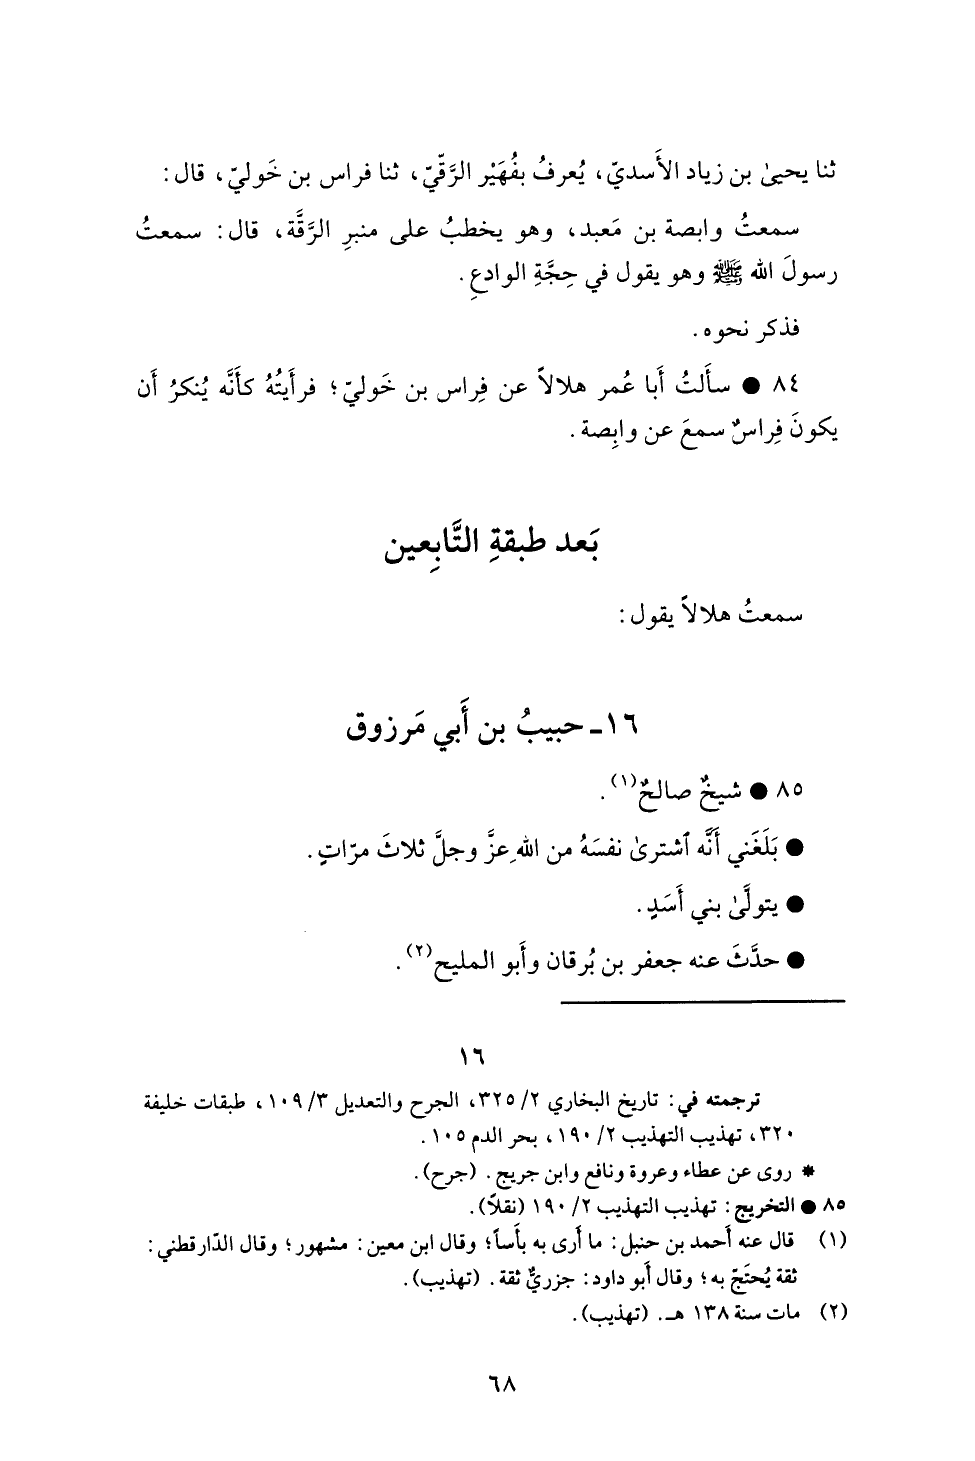 ثنا يحيىٰ بن زياد الأَسديّ، يُعرفُ بفُهَيْر الرَّقّيّ، ثنا فراس بن خَوليّ، قال:
سمعتُ وابصة بن مَعبد، وهو يخطبُ على منبرِ الرَّقَّة، قال: سمعتُ
رسولَ الله ﷺ وهو يقول في حِجَّةِ الوادعِ.
فذكر نحوه.
٨٤ ● سأَلتُ أَبا عُمر هلالاً عن فِراس بن خَوليّ؛ فرأَيتُهُ كأَنَّه يُنكرُ أَن
يكونَ فِراسٌ سمعَ عن وابِصة.
بَعد طبقةِ التَّابِعين
سمعتُ هلالاً يقول:
١٦ـ حبيبُ بن أَبي مَرزوق
٨٥ ● شيخٌ صالحٌ(١).
● بَلَغَني أَنَّه ٱشترىٰ نفسَهُ من اللهِ عزَّ وجلَّ ثلاثَ مرّاتٍ.
● يتولَّىٰ بني أَسَدٍ.
● حدَّثَ عنه جعفر بن بُرقان وأَبو المليح(٢).
١٦
ترجمته في: تاريخ البخاري ٢/ ٣٢٥، الجرح والتعديل ٣/ ١٠٩، طبقات خليفة
٣٢٠، تهذيب التهذيب ٢/ ١٩٠، بحر الدم ١٠٥.
* روى عن عطاء وعروة ونافع وابن جريج. (جرح).
٨٥ ● التخريج: تهذيب التهذيب ٢/ ١٩٠ (نقلاً).
(١) قال عنه أَحمد بن حنبل: ما أرى به بأَساً؛ وقال ابن معين: مشهور؛ وقال الدّارقطني:
ثقة يُحتَجّ به؛ وقال أَبو داود: جزريٌّ ثقة. (تهذيب).
(٢) مات سنة ١٣٨ هـ. (تهذيب).
٦٨